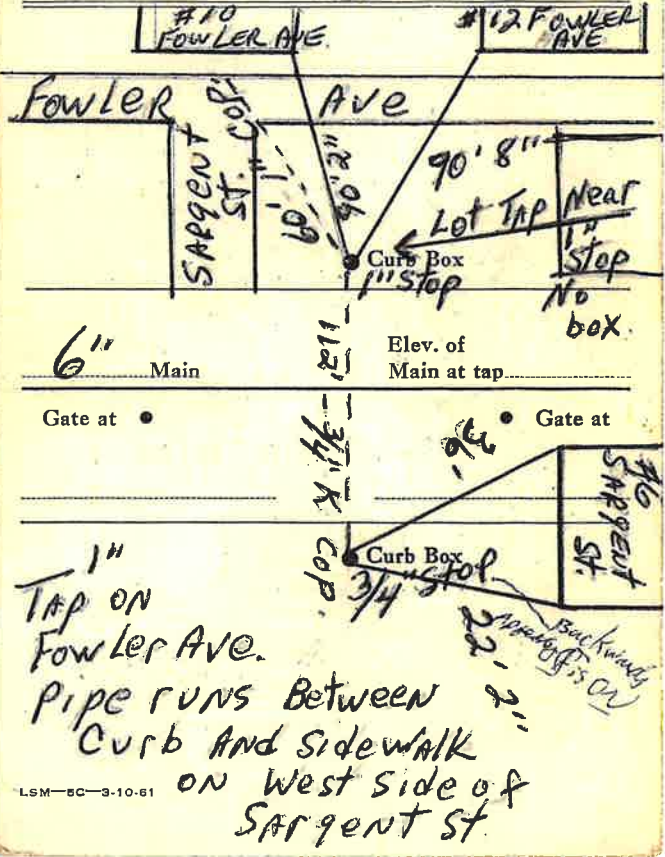 #10
FOWLER AVE.
#12 FOWLER
AVE
FOWLER AVE
SARGENT
ST.
COP.
60' 1"
40' 2"
90' 8"
Lot TAP Near
1"
Stop
No
box.
Curb Box
1" Stop
112' - 3/4" K COP.
6" Main
Elev. of
Main at tap
Gate at
Gate at
#6
SARGENT
ST.
Curb Box
3/4" STOP
22' 2"
Backwards
off is ON
1"
TAP ON
Fowler Ave.
Pipe runs Between
Curb And Sidewalk
ON West Side of
SARGENT St.
LSM—5C—3-10-61